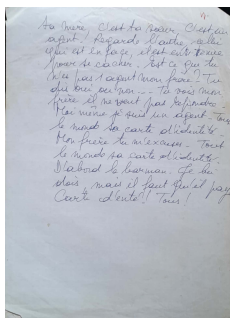 ta mère, c'est ta sœur, c'est un
agent! Regarde l'autre, celui
qui est en face, il est en tenue
pour se cacher. Est ce que tu
n'es pas l'agent mon frère? Tu
dis oui ou non... Tu vois mon
frère il ne veut pas répondre.
Moi même je suis un agent. Tous
le monde sa carte d'identité.
Mon frère tu m'excuses. Tout
le monde sa carte d'identité.
D'abord le barman. Je le
dois, mais il faut qu'il paye
Carte d'enté! Tous!